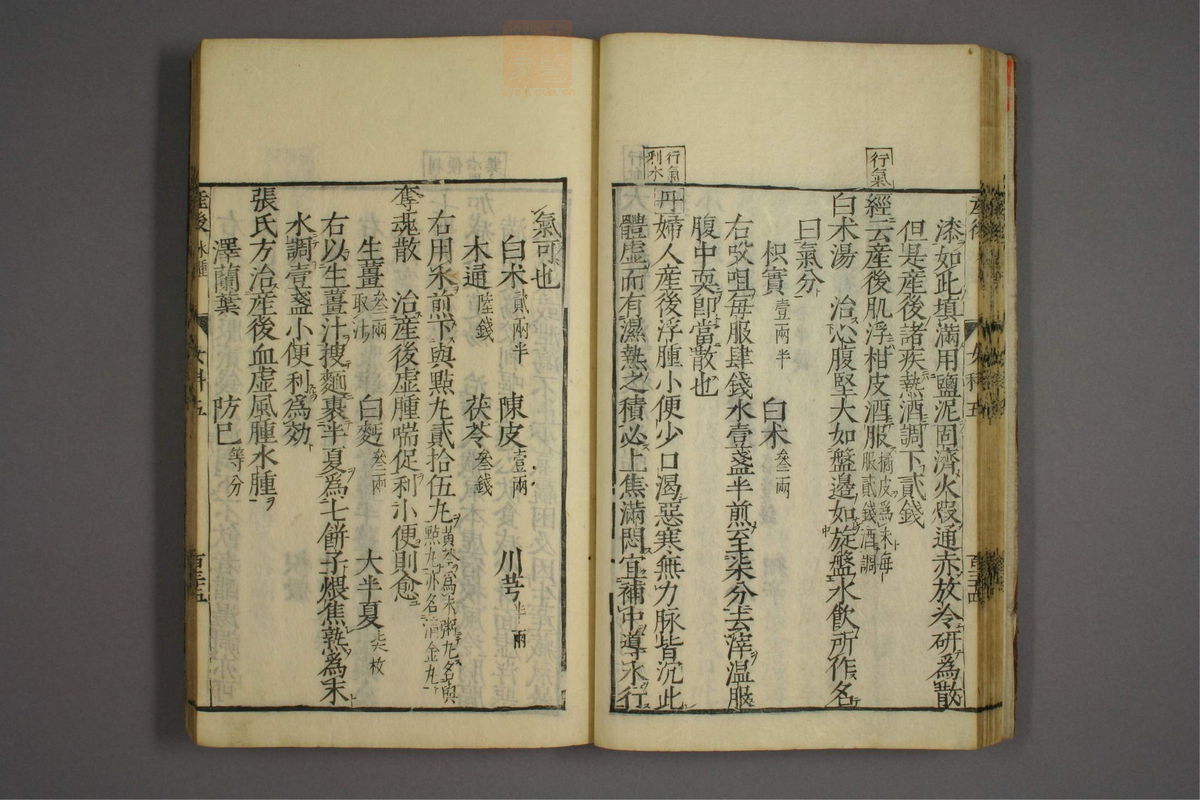 漆如此填滿用鹽泥固濟火煅通赤放冷研爲散
但是產後諸疾熱酒調下貳錢
行氣
經云產後肌浮柑皮酒服橘皮爲末每服貳錢酒調
白术湯 治心腹堅大如盤邊如旋盤水飲所作名
曰氣分
枳實壹兩半 白术叄兩
右㕮咀每服肆錢水壹盞半煎至柒分去滓温服
腹中耎卽當散也
行氣利水
丹婦人產後浮腫小便少口渴惡寒無力脉皆沉此
體虛而有濕熱之積必上焦滿悶宜補中導水行
氣可也
白术貳兩半 陳皮壹兩 川芎半兩
木通陸錢 茯苓叄錢
右用水煎下與點丸貳拾伍丸黄芩爲末粥丸名與點丸亦名清金丸
奪魂散 治產後虛腫喘促利小便則愈
生薑叄兩取汁 白麪叄兩 大半夏柒枚
右以生薑汁搜麵裹半夏爲七餅子煨焦熟爲末
水調壹盞小便利爲効
張氏方治產後血虛風腫水腫
澤蘭葉 防巳等分
產後 水腫 女科五 百三十五
產後 女科五 百三十四